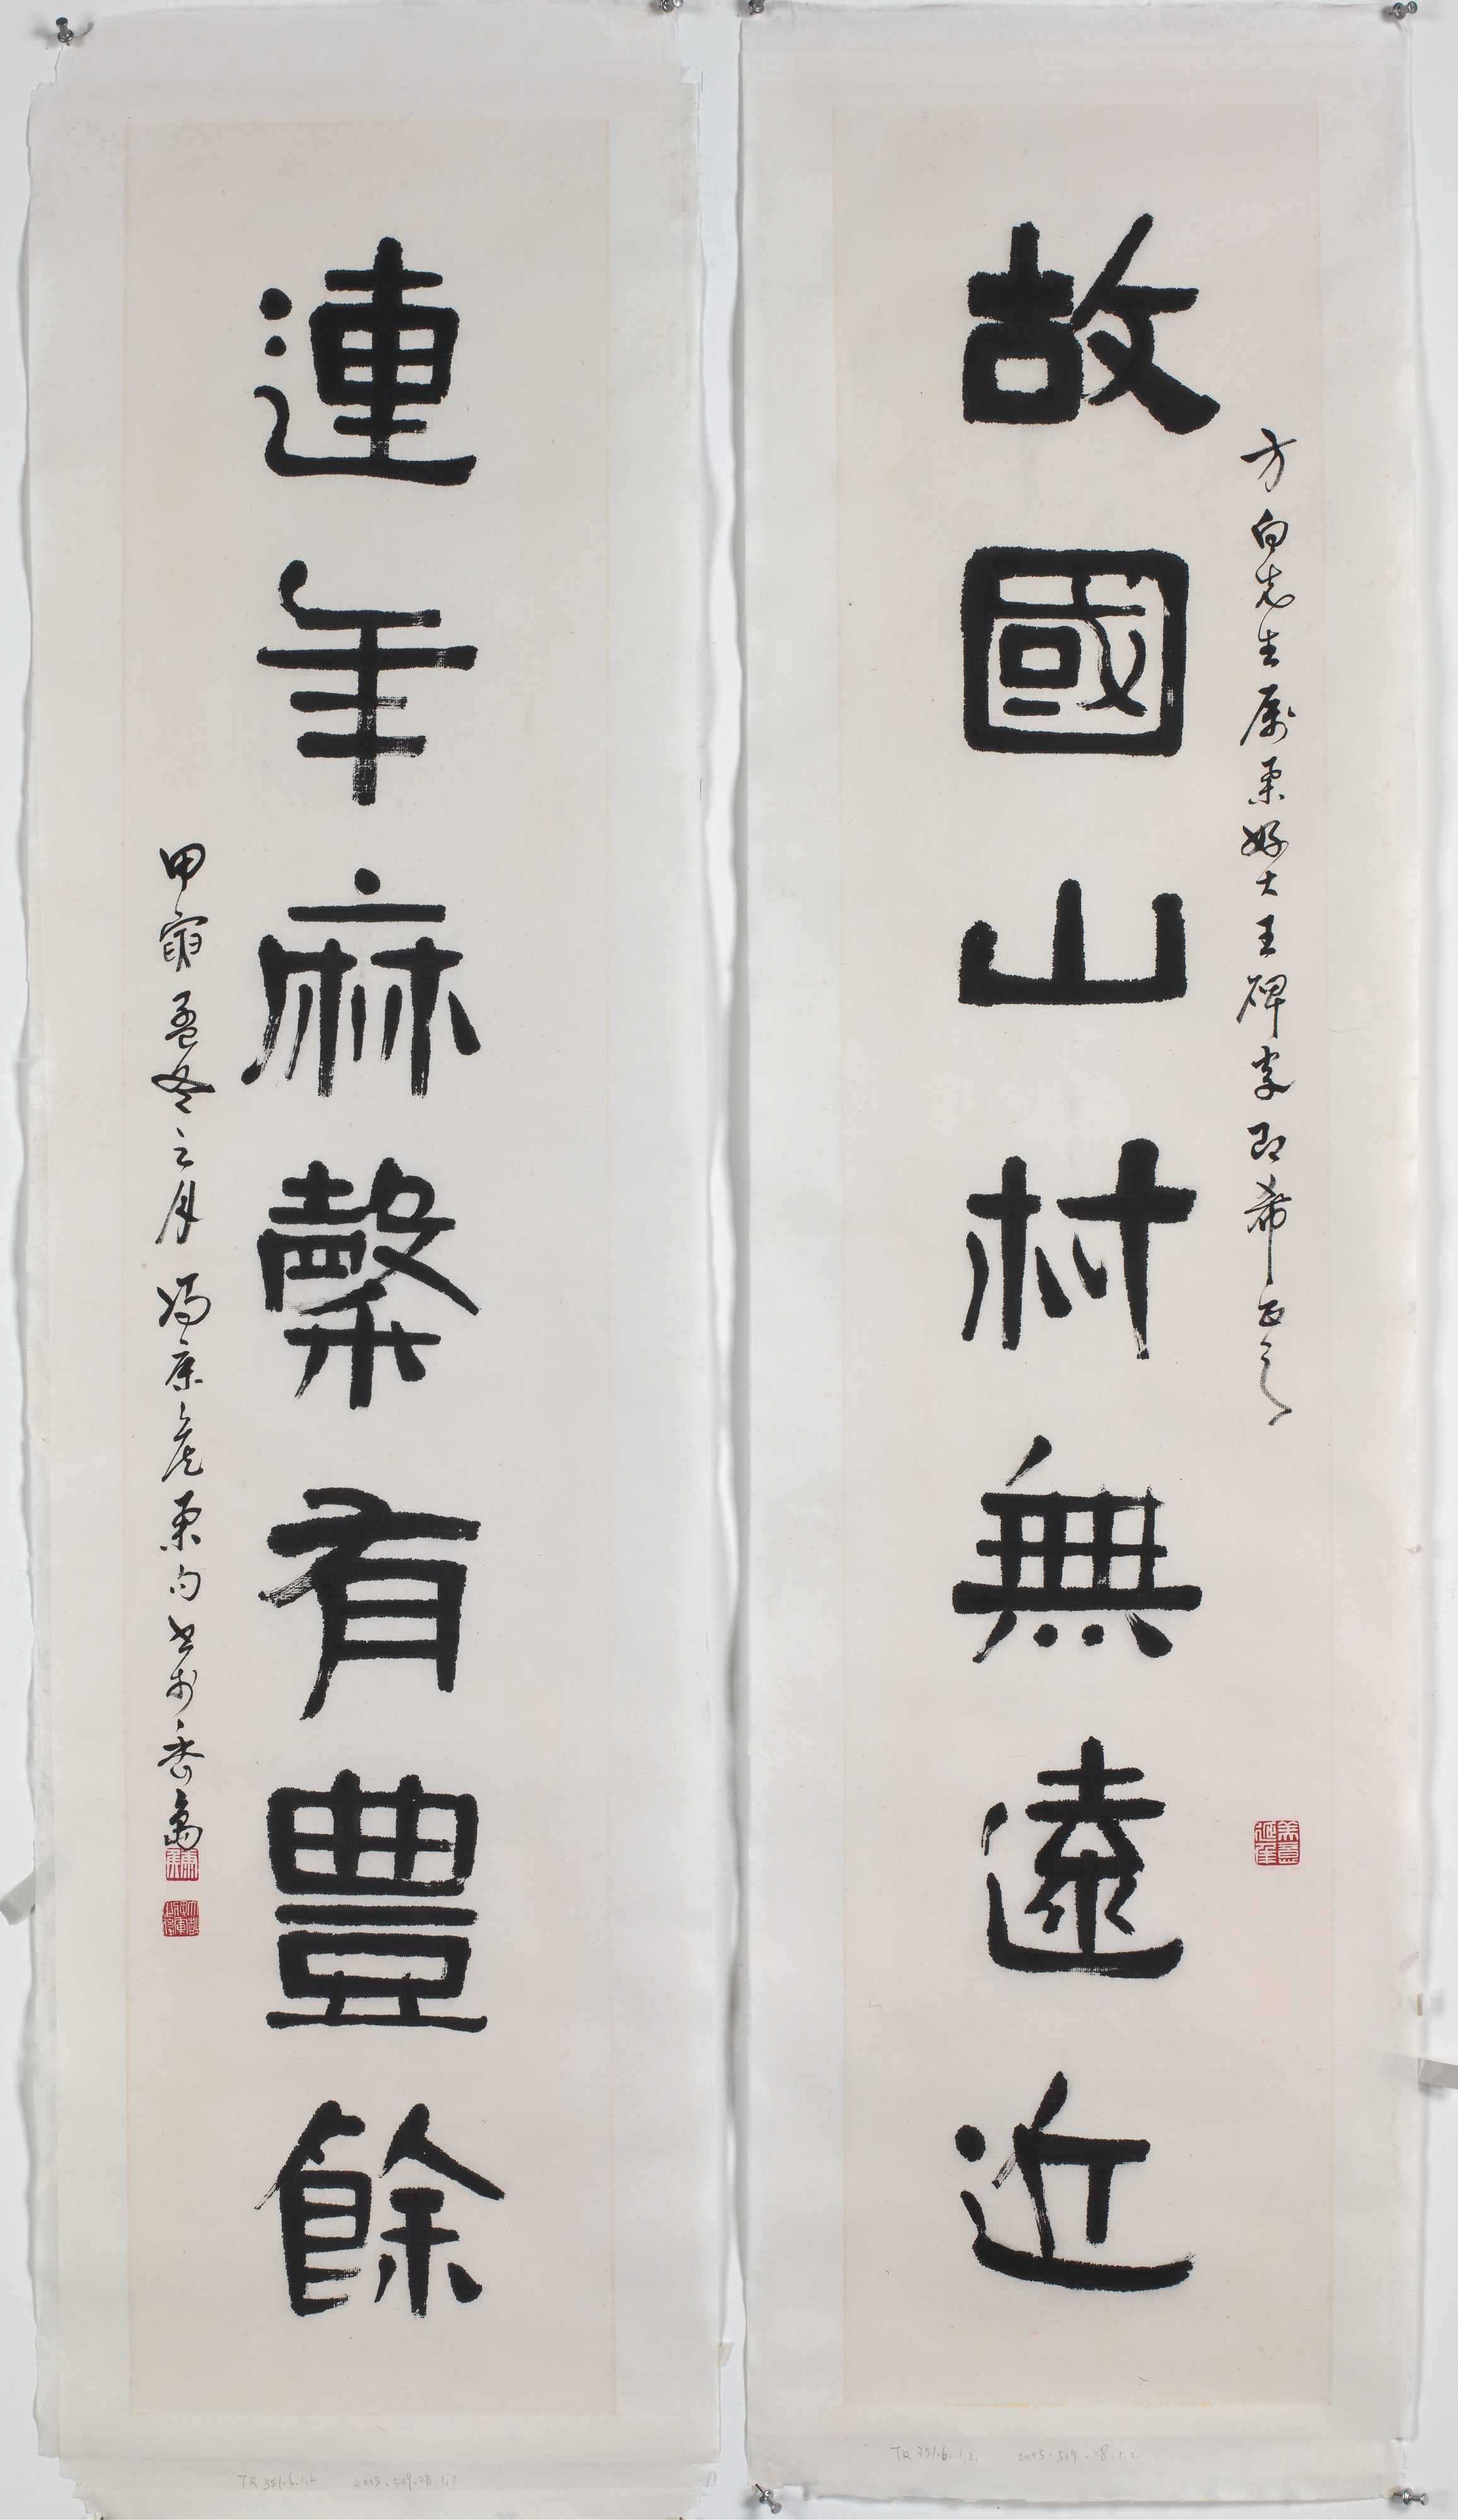 故國山村無遠近
方白先生属集好大王碑字即希正之
連年麻縠有豐餘
甲寅孟冬之月馮康矦集句書於香島
TR 351.6.1,2. 2005.509.28.1,2.
TR 351.6.1,2 2005.509.28.1,2